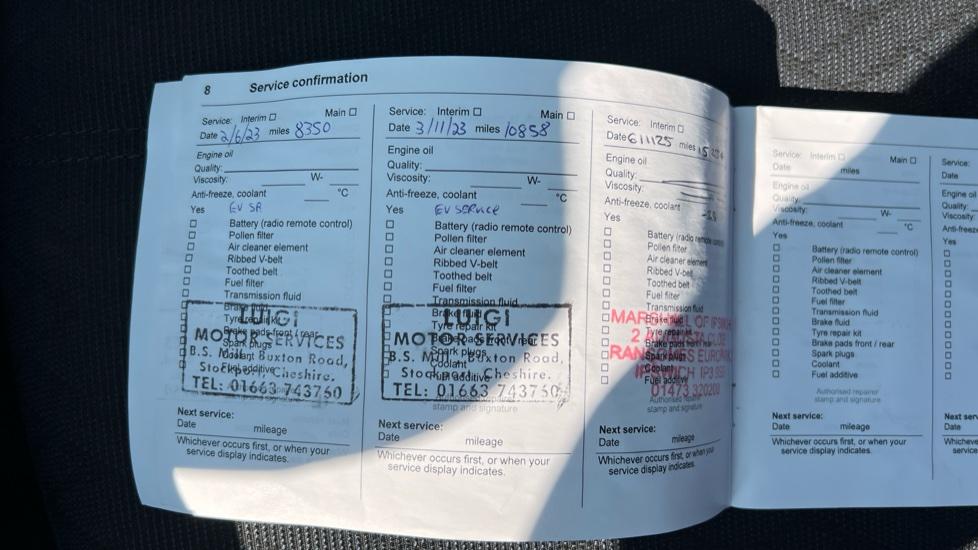 8 Service confirmation
Service: Interim ☐ Main ☐
Date 2/6/23 miles 8350
Engine oil
Quality:
Viscosity: W-
Anti-freeze, coolant °C
Yes EV SR
☐ Battery (radio remote control)
☐ Pollen filter
☐ Air cleaner element
☐ Ribbed V-belt
☐ Toothed belt
☐ Fuel filter
☐ Transmission fluid
☐ Brake fluid
☐ Tyre repair kit
☐ Brake pads front / rear
☐ Spark plugs
☐ Coolant
☐ Fuel additive
LUIGI
MOTOR SERVICES
B.S. Mill, Buxton Road,
Stockport, Cheshire.
TEL: 01663 743760
Next service:
Date mileage
Whichever occurs first, or when your
service display indicates.
Service: Interim ☐ Main ☐
Date 3/11/23 miles 10858
Engine oil
Quality:
Viscosity: W-
Anti-freeze, coolant °C
Yes EV SERVICE
☐ Battery (radio remote control)
☐ Pollen filter
☐ Air cleaner element
☐ Ribbed V-belt
☐ Toothed belt
☐ Fuel filter
☐ Transmission fluid
☐ Brake fluid
☐ Tyre repair kit
☐ Brake pads front / rear
☐ Spark plugs
☐ Coolant
☐ Fuel additive
LUIGI
MOTOR SERVICES
B.S. Mill, Buxton Road,
Stockport, Cheshire.
TEL: 01663 743760
stamp and signature
Next service:
Date mileage
Whichever occurs first, or when your
service display indicates.
Service: Interim ☐
Date 6/1/25 miles
Engine oil
Quality:
Viscosity:
Anti-freeze, coolant
Yes
☐ Battery (radio remote control)
☐ Pollen filter
☐ Air cleaner element
☐ Ribbed V-belt
☐ Toothed belt
☐ Fuel filter
☐ Transmission fluid
☐ Brake fluid
☐ Tyre repair kit
☐ Brake pads front / rear
☐ Spark plugs
☐ Coolant
☐ Fuel additive
MARSHALL OF IPSWICH
IPSWICH IP3
01473 320200
Authorised repairer
stamp and signature
Next service:
Date mileage
Whichever occurs first, or when your
service display indicates.
Service: Interim ☐ Main ☐
Date miles
Engine oil
Quality:
Viscosity: W-
Anti-freeze, coolant °C
Yes
☐ Battery (radio remote control)
☐ Pollen filter
☐ Air cleaner element
☐ Ribbed V-belt
☐ Toothed belt
☐ Fuel filter
☐ Transmission fluid
☐ Brake fluid
☐ Tyre repair kit
☐ Brake pads front / rear
☐ Spark plugs
☐ Coolant
☐ Fuel additive
Authorised repairer
stamp and signature
Next service:
Date mileage
Whichever occurs first, or when your
service display indicates.
Service:
Date
Engine oil
Quality:
Viscosity:
Yes